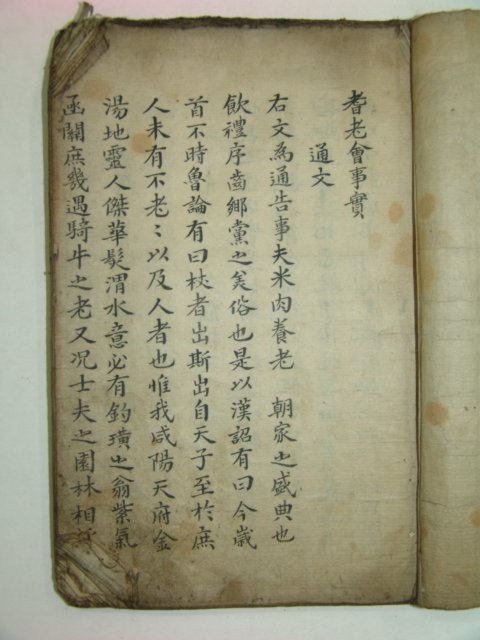 耆老會事實
通文
右文為通告事夫米肉養老 朝家之盛典也
飲禮序齒鄉黨之美俗也是以漢詔有曰今歲
首不時魯論有曰杖者出斯出自天子至於庶
人未有不老〻以及人者也惟我咸陽天府金
湯地靈人傑華髮渭水意必有釣璜之翁紫氣
函關庶幾遇騎牛之老又况士夫之園林相